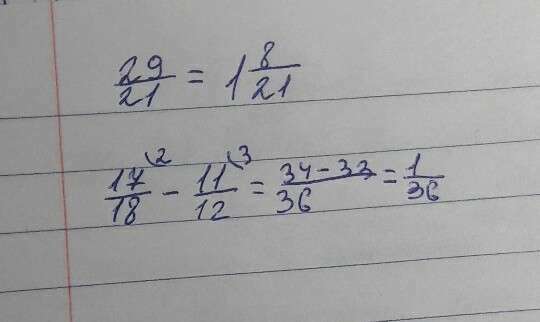 29/21 = 1 8/21
17/18 \2 - 11/12 \3 = 34-33/36 = 1/36